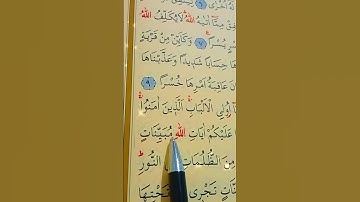 مِمَّا اٰتٰیهُ اللّٰهُ لَا یُكَلِّفُ اللّٰهُ
یُسْرًا ﴿٧﴾ وَكَاَیِّنْ مِنْ قَرْیَةٍ
حِسَابًا شَدِیدًا وَعَذَّبْنَاهَا
عَاقِبَةُ اَمْرِهَا خُسْرًا ﴿٩﴾
اُو۬لِي الْاَلْبَابِ الَّذِینَ اٰمَنُوا
عَلَیْكُمْ اٰیَاتِ اللّٰهِ مُبَیِّنَاتٍ
مِنَ الظُّلُمَاتِ النُّورِ
تَجْرِي تَحْتِهَا